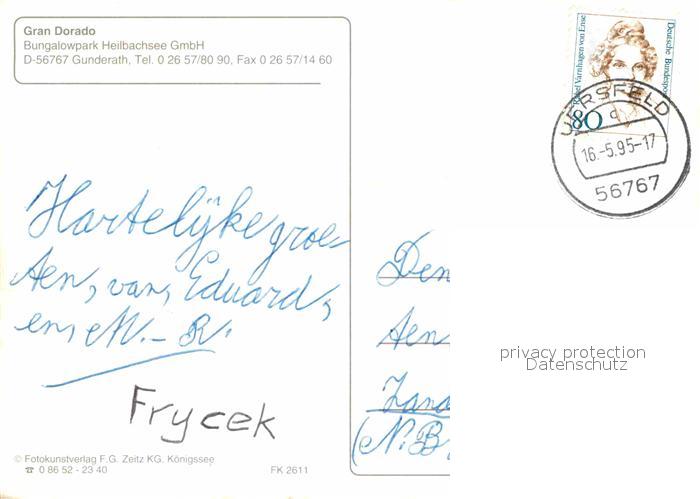 Gran Dorado
Bungalowpark Heilbachsee GmbH
D-56767 Gunderath, Tel. 0 26 57/80 90, Fax 0 26 57/14 60
Rahel Varnhagen von Ense
Deutsche Bundespost
80
UERSFELD
d
16.-5.95-17
56767
Hartelijke groe-
ten, van, Eduard,
en, M.- R.
Frycek
Den
Aen
Zand
(N.B,
privacy protection
Datenschutz
© Fotokunstverlag F.G. Zeitz KG. Königssee
☎ 0 86 52 - 23 40
FK 2611